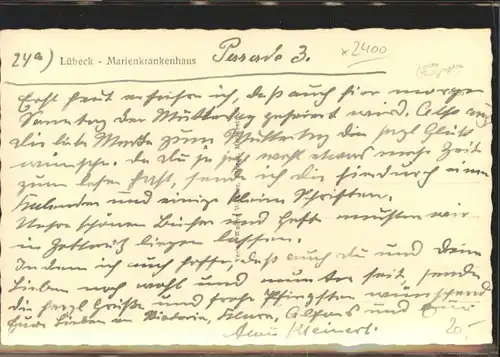 24a) Lübeck - Marienkrankenhaus Parade 3. x2400
Erst heut erfuhr ich, daß auch hier morgen
Sonntag der Muttertag gefeiert wird. Also auch
die liebe Martha zum Muttertag die herzl Glück
wünsche. Da Du ja jetzt wohl etwas mehr Zeit
zum lesen hast, sende ich die hierdurch einen
Kalender und einige kleine Schriften.
Unsre schönen Bücher und Hefte mußten wir
in liegen lassen.
In dem ich auch hoffe, daß auch Du und Deine
Lieben noch wohl und munter seit, sende
die herzl Grüße und frohe Pfingsten wünschend
Eure Lieben in Viktoria, Alfons und Eure
Anna Kleinert.
20,-